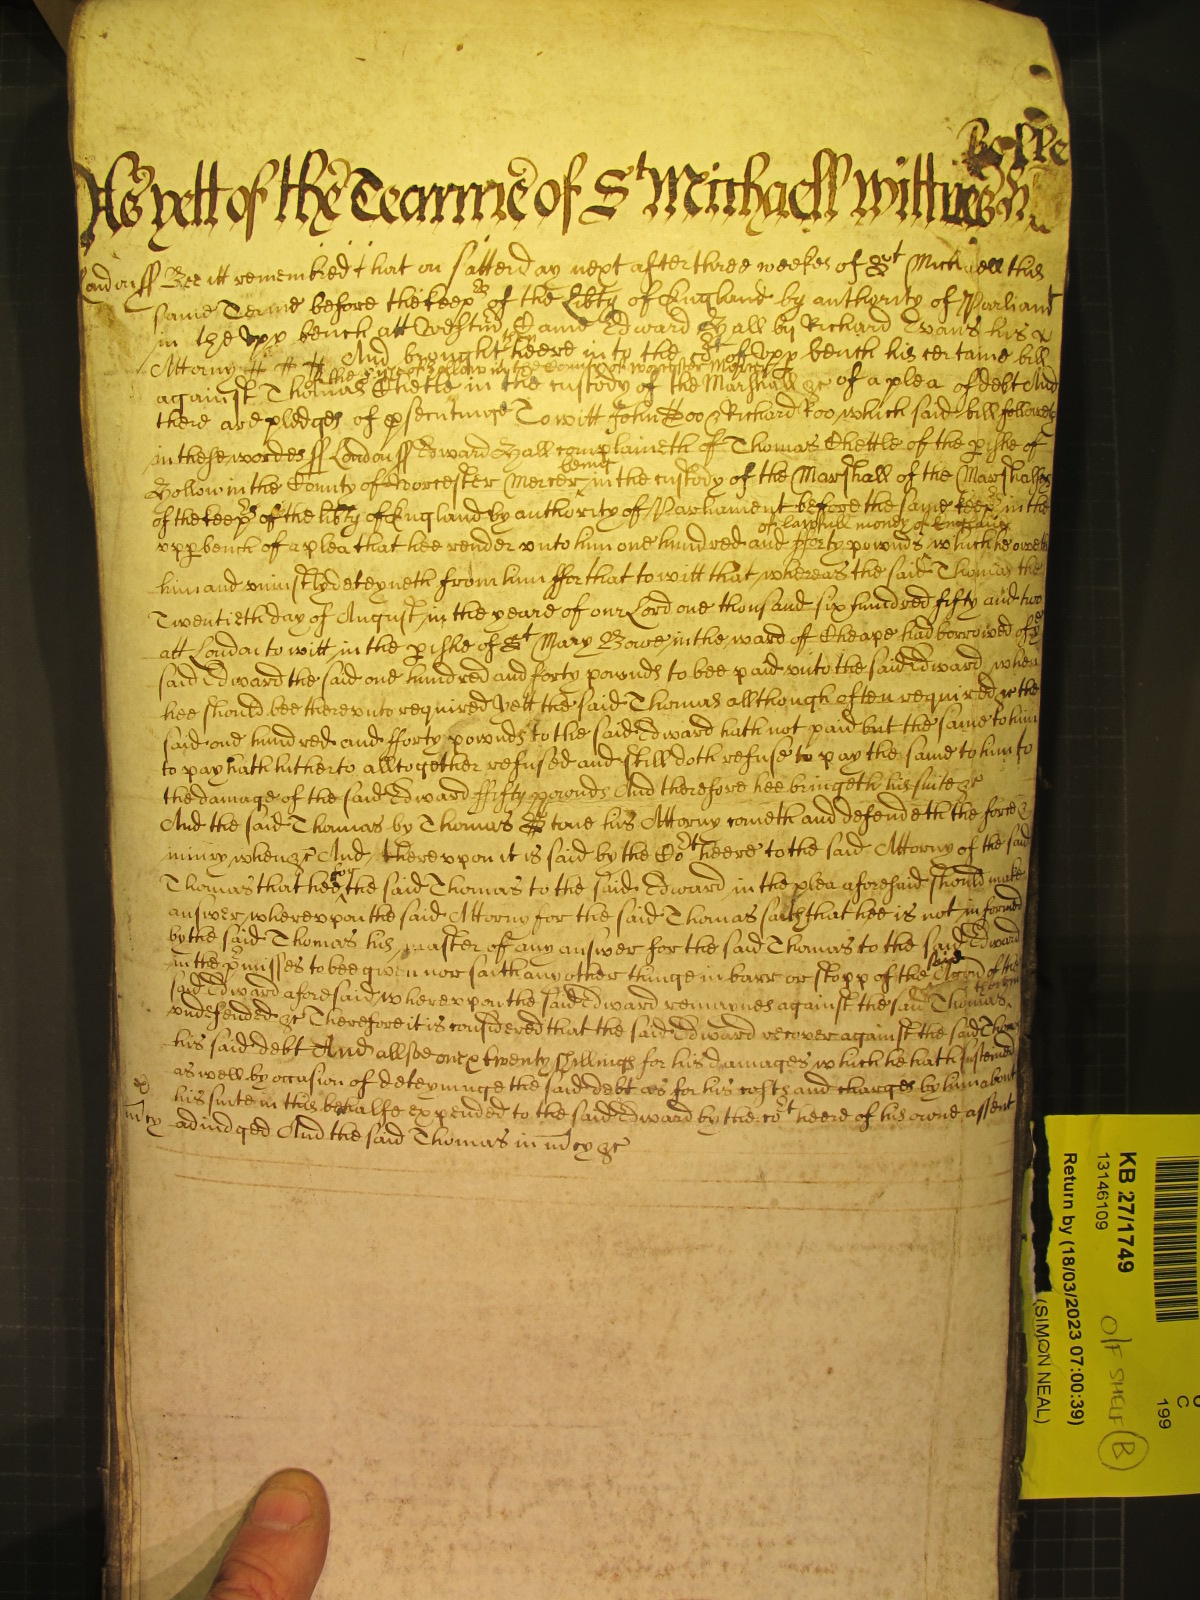 Rolle
As yett of the Tearme of St Michaell Wittnes H
London ss Bee itt remembred that on Satterday next after three weekes of St Michaell this
same Terme before the keeps of the Libty of England by authority of Parliamt
in the Upp bench att Westmr Came Edward Hall by Richard Evans his
Attorny And brought heere into the Cort of Upp bench his certaine bill
of the pishe of Hollow in the County of Worcester Mercer
against Thomas Chetle in the custody of the Marshall &c of a plea of debt And
there are pledges of psecutinge To witt John Doo & Richard Roo which said bill followes
in these wordes ss London ss Edward Hall complaineth of Thomas Chettle of the pishe of
Hollow in the County of Worcester Mercer being in the custody of the Marshall of the Marshalsey
of the keeps of the libty of England by authority of Parliament before the same keeps in the
of lawfull money of England
upp bench of a plea that hee render unto him one hundred and forty pownds which he oweth
him and uniustly deteyneth from him ffor that to witt that whereas the said Thomas the
Twentieth day of August in the yeare of our Lord one thousand six hundred fifty and two
att London to witt in the pishe of St Mary Bowe in the ward of Cheape had borrowed of ye
said Edward the said one hundred and forty pownds to bee paid unto the said Edward when
hee should bee thereunto required Yett the said Thomas allthough often required ye the
said one hundred and fforty pownds to the said Edward hath not paid but the same to him
to pay hath hitherto alltogether refused and still doth refuse to pay the same to him to
the damage of the said Edward ffifty pownds And therefore hee bringeth his suite &c
And the said Thomas by Thomas Stone his Attorny cometh and defendeth the force &
iniury when &c And thereupon it is said by the Cort heere to the said Attorny of the said
Thomas that hee for the said Thomas to the said Edward in the plea aforesaid should make
answer whereupon the said Attorny for the said Thomas saith that hee is not informed
by the said Thomas his master of any answer for the said Thomas to the said Edward
in the pmisses to bee given nor saith any other thinge in barr or stopp of the said Accon of the
said Edward aforesaid whereupon the said Edward remaynes against the said Thomas therein
undefended &c Therefore it is considered that the said Edward recover against the said Thomas
his said debt And allsoe twenty shillings for his damages which he hath susteined
as well by occasion of deteyninge the said debt as for his costs and charges by him about
his suite in this behalfe expended to the said Edward by the Cort heere of his owne assent
mcy adiudged And the said Thomas in mcy &c
KB 27/1749
13146109
Return by (18/03/2023 07:00:39)
(SIMON NEAL)
O/F SHELF B
C
199